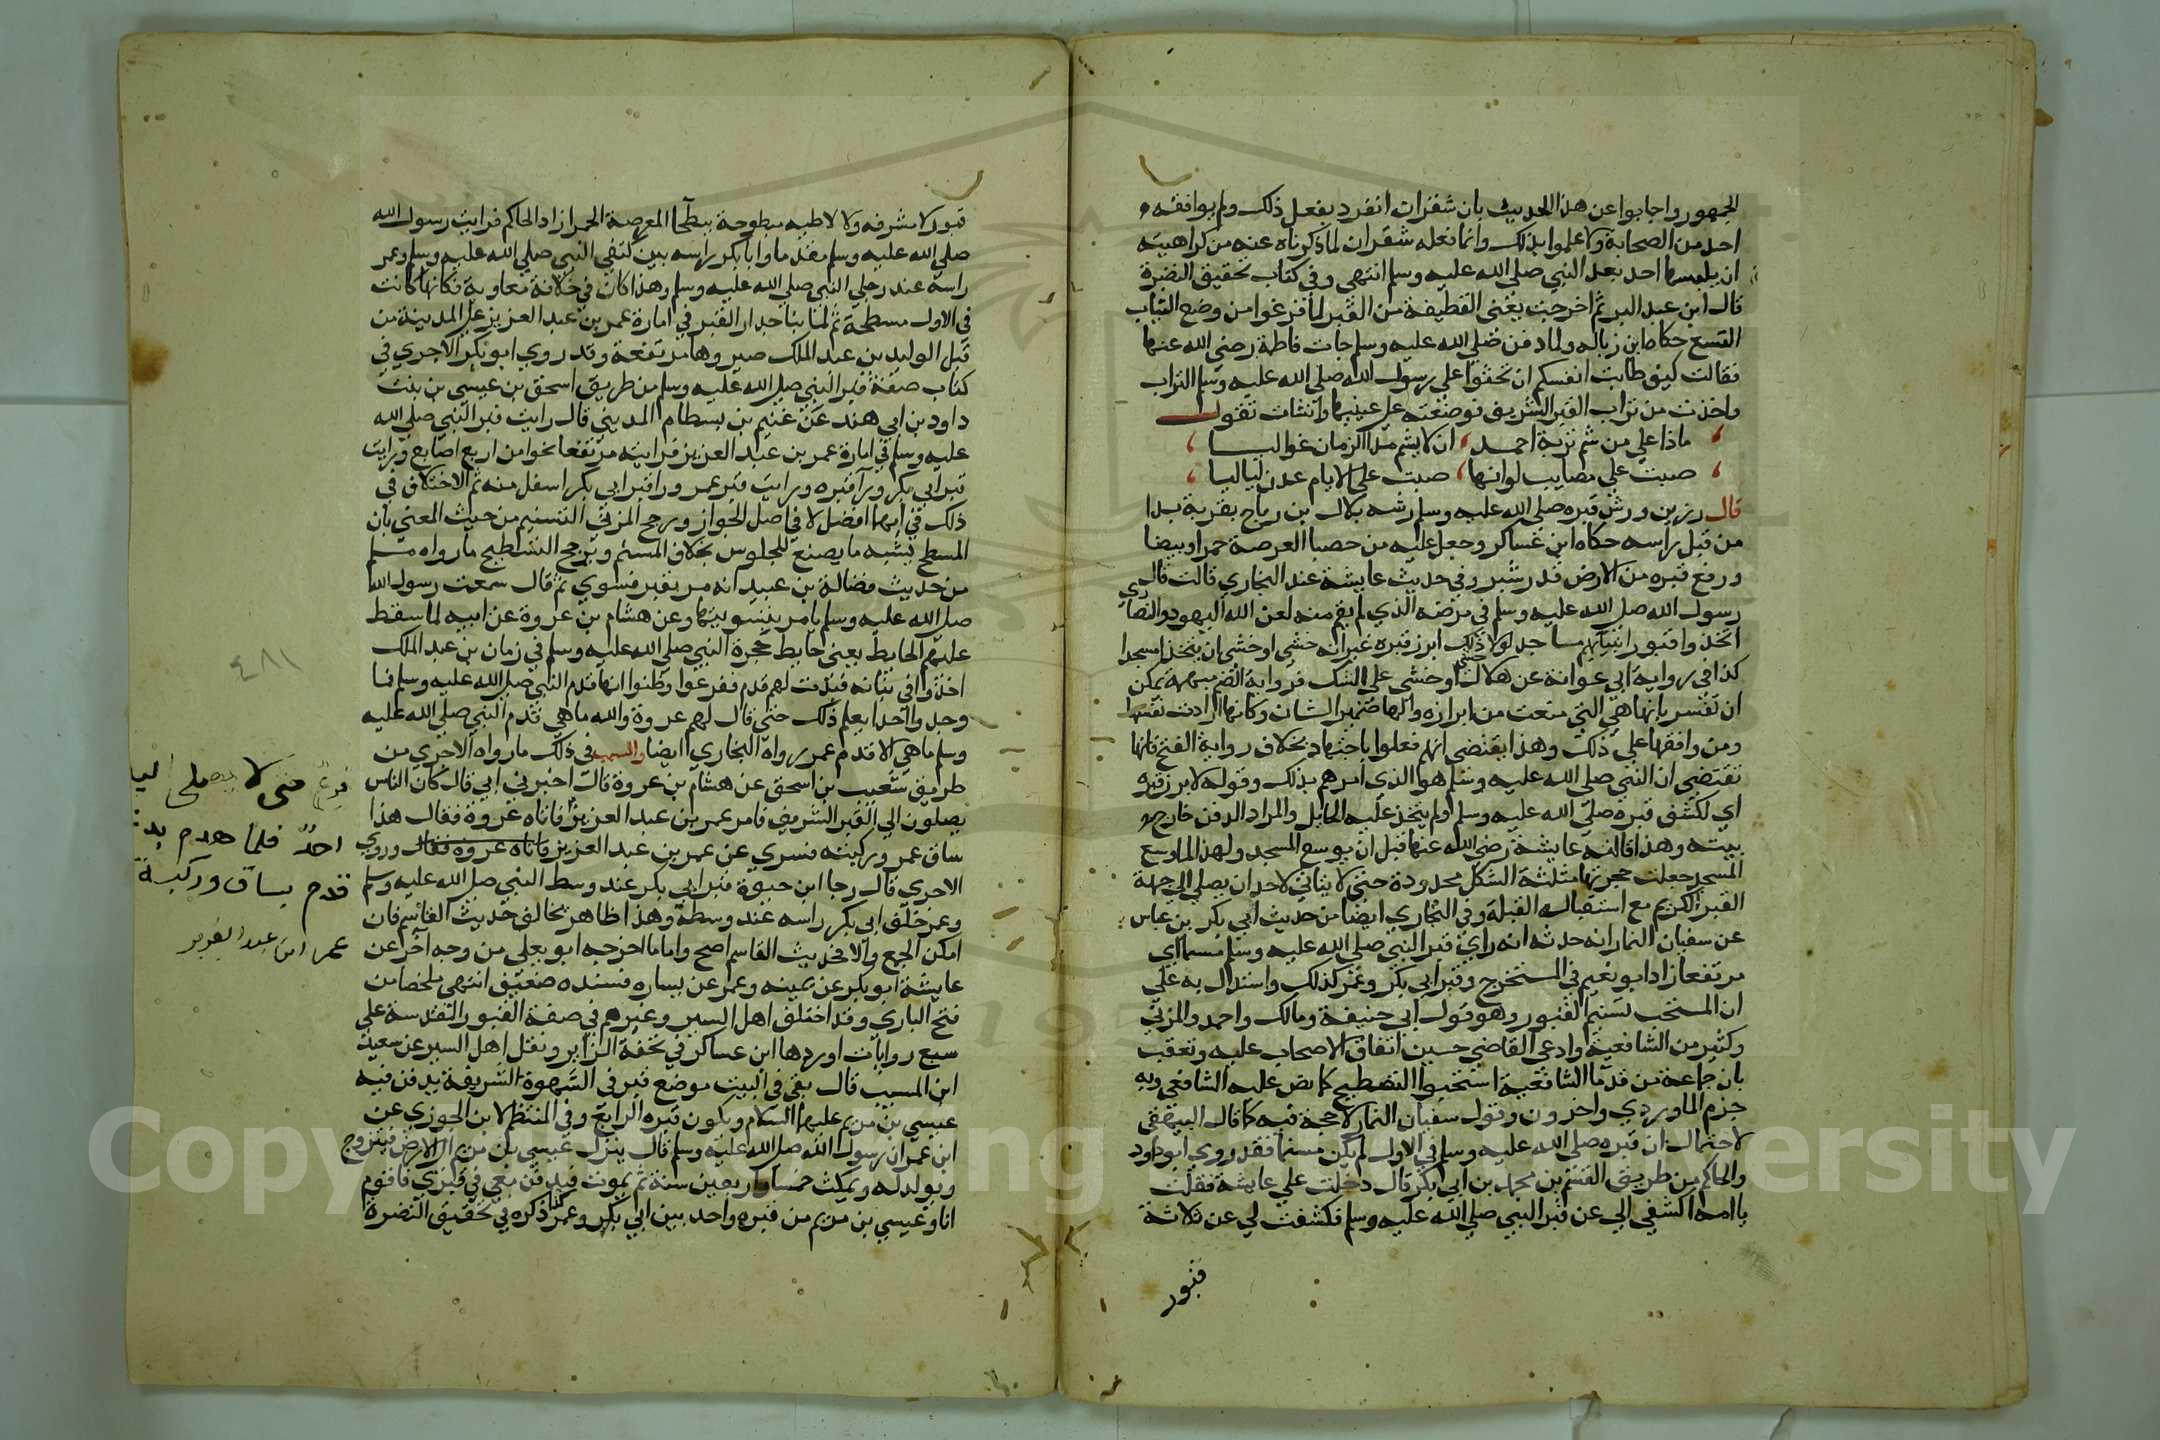 الجمهور واجابوا عن هذا الحديث بان شقران انفرد بفعل ذلك ولم يوافقه
احد من الصحابة ولا علموا بذلك وانما فعله شقران لما ذكرناه عنه من كراهيته
ان يلبسها احد بعد النبي صلي الله عليه وسلم انتهي وفي كتاب تحقيق النضرة
قال ابن عبد البر ثم اخرجت يعني القطيفة من القبر لما فرغوا من وضع اللبنات
التسع حكاه ابن زباله ولما دفن صلي الله عليه وسلم جات فاطمة رضي الله عنها
فقالت كيف طابت انفسكم ان تحثوا علي رسول الله صلي الله عليه وسلم التراب
واخذت من تراب القبر الشريف فوضعته علي عينيها وانشات تقول
ماذا علي من شم تربة احمد ان لا يشم مدا الزمان غواليا
صبت علي مصايب لوانها صبت علي الايام عدن لياليا
قال رزين ورش قبره صلي الله عليه وسلم رشه بلال ابن رباح بقربة بدا
من قبل راسه حكاه ابن عساكر وجعل عليه من حصبا العرصة حمرا وبيضا
ورفع قبره من الارض قدر شبر وفي حديث عايشة عند البخاري قالت قال
رسول الله صلي الله عليه وسلم في مرضه الذي لم يقم منه لعن الله اليهود والنصاري
اتخذوا قبور انبيائهم مساجد لولا ذلك ابرز قبره غير انه خشي او خشي ان يتخذ مسجدا
كذا في رواية ابي عوانة عن هلال او خشي علي الشك فرواية الضم مبهمة يمكن
ان تفسر بانها هي التي منعت من ابرازه والها ضمير الشان وكانها ارادت نفسها
ومن وافقها علي ذلك وهذا يقتضي انهم فعلوا باجتهاد بخلاف رواية الفتح فانها
تقتضي ان النبي صلي الله عليه وسلم هو الذي امرهم بذلك وقوله لابرز قبره
اي لكشف قبره صلي الله عليه وسلم ولم يتخذ عليه الحايل والمراد الدفن خارج
بيته وهذا قالته عايشة رضي الله عنها قبل ان يوسع المسجد ولهذا لما وسع
المسجد جعلت حجرتها مثلثة الشكل محدودة حتي لا يتاتي لاحد ان يصلي الي جهة
القبر الكريم مع استقبال القبلة وفي البخاري ايضا من حديث ابي بكر بن عياش
عن سفيان التمار انه حدثه انه راي قبر النبي صلي الله عليه وسلم مسنما اي
مرتفعا زاد ابو نعيم في المستخرج وقبر ابي بكر وعمر كذلك واستدل به علي
ان المستحب تسنيم القبور وهو قول ابي حنيفة ومالك واحمد والمزني
وكثير من الشافعية وادعي القاضي حسين اتفاق الاصحاب عليه وتعقب
بان جماعة من قدما الشافعية استحبوا التسطيح كما نص عليه الشافعي وبه
جزم الماوردي واخرون وقول سفيان التمار لا حجة فيه كما قال البيهقي
لاحتمال ان قبره صلي الله عليه وسلم في الاول لم يكن مسنما فقد روي ابو داود
والحاكم من طريق القسم بن محمد بن ابي بكر قال دخلت علي عايشة فقلت
يا امه اكشفي لي عن قبر النبي صلي الله عليه وسلم فكشفت لي عن ثلاثة
قبور
قبور لا مشرفه ولا لاطيه مبطوحة ببطحا العرصة الحمرا زاد الحاكم فرايت رسول الله
صلي الله عليه وسلم مقدما وابا بكر راسه بين كتفي النبي صلي الله عليه وسلم وعمر
راسه عند رجلي النبي صلي الله عليه وسلم وهذا كان في خلافة معاوية فكانها كانت
في الاول مسطحة ثم لما بنا جدار القبر في امارة عمر بن عبد العزيز علي المدينة من
قبل الوليد بن عبد الملك صيروها مرتفعة وقد روي ابو بكر الاجري في
كتاب صفة قبر النبي صلي الله عليه وسلم من طريق اسحق بن عيسي بن بنت
داود بن ابي هند عن غنيم بن بسطام المديني قال رايت قبر النبي صلي الله
عليه وسلم في امارة عمر بن عبد العزيز فرايته مرتفعا نحوا من اربع اصابع ورايت
قبر ابي بكر ورا قبره ورايت قبر عمر ورا قبر ابي بكر اسفل منه ثم الاختلاف في
ذلك في ايهما افضل لا في اصل الجواز ورجح المزني التسنيم من حيث المعني بان
المسطح يشبه ما يصنع للجلوس بخلاف المسنم ويرجح التسطيح ما رواه مسلم
من حديث فضالة بن عبيد انه مر بقبر فسوي ثم قال سمعت رسول الله
صلي الله عليه وسلم يامر بتسويتها وعن هشام بن عروة عن ابيه لما سقط
عليهم الحايط يعني حايط حجرة النبي صلي الله عليه وسلم في زمان بن عبد الملك
اخذوا في بنائه فبدت لهم قدم ففزعوا وظنوا انها قدم النبي صلي الله عليه وسلم فما
وجدوا احدا يعلم ذلك حتي قال لهم عروة والله ما هي قدم النبي صلي الله عليه
وسلم ما هي الا قدم عمر رواه البخاري ايضا والسبب في ذلك ما رواه الاجري من
طريق شعيب بن اسحق عن هشام بن عروة قال اخبرني ابي قال كان الناس
يصلون الي القبر الشريف فامر عمر بن عبد العزيز فاتاه عروة فقال هذا
ساق عمر وركبته فسري عن عمر بن عبد العزيز فاتاه عروه فقال وروي
الاجري قال رجا ابن حيوة قبر ابي بكر عند وسط النبي صلي الله عليه وسلم
وعمر خلف ابي بكر راسه عند وسطه وهذا ظاهره يخالف حديث القاسم فان
امكن الجمع والا فحديث القاسم اصح واما ما اخرجه ابو يعلي من وجه اخر عن
عايشة ابو بكر عن يمينه وعمر عن يساره فسنده ضعيف انتهي ملخصا من
فتح الباري وقد اختلف اهل السير وغيرهم في صفة القبور المقدسة علي
سبع روايات اوردها ابن عساكر في تحفة الزاير ونقل اهل السير عن سعيد
ابن المسيب قال بقي في البيت موضع قبر في السهوة الشريفة يدفن فيه
عيسي بن مريم عليهما السلام ويكون قبره الرابع وفي المنتظم لابن الجوزي عن
ابن عمر ان رسول الله صلي الله عليه وسلم قال ينزل عيسي بن مريم الي الارض فيتزوج
ويولد له ويمكث خمسا واربعين سنة ثم يموت فيدفن معي في قبري فاقوم
انا وعيسي بن مريم من قبر واحد بين ابي بكر وعمر كذا ذكره في تحقيق النضرة
٤٨١
فرفع حتي لا يصلي اليه
احد فلما هدم بدت
قدم بساق وركبة
عمر ابن عبد العزيز
Copyright © King Saud University